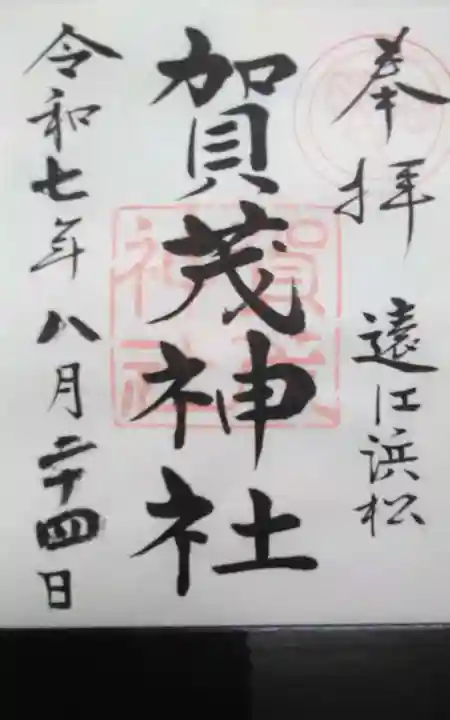 奉拝
遠江浜松
賀茂神社
賀茂
神社
令和七年八月二十四日